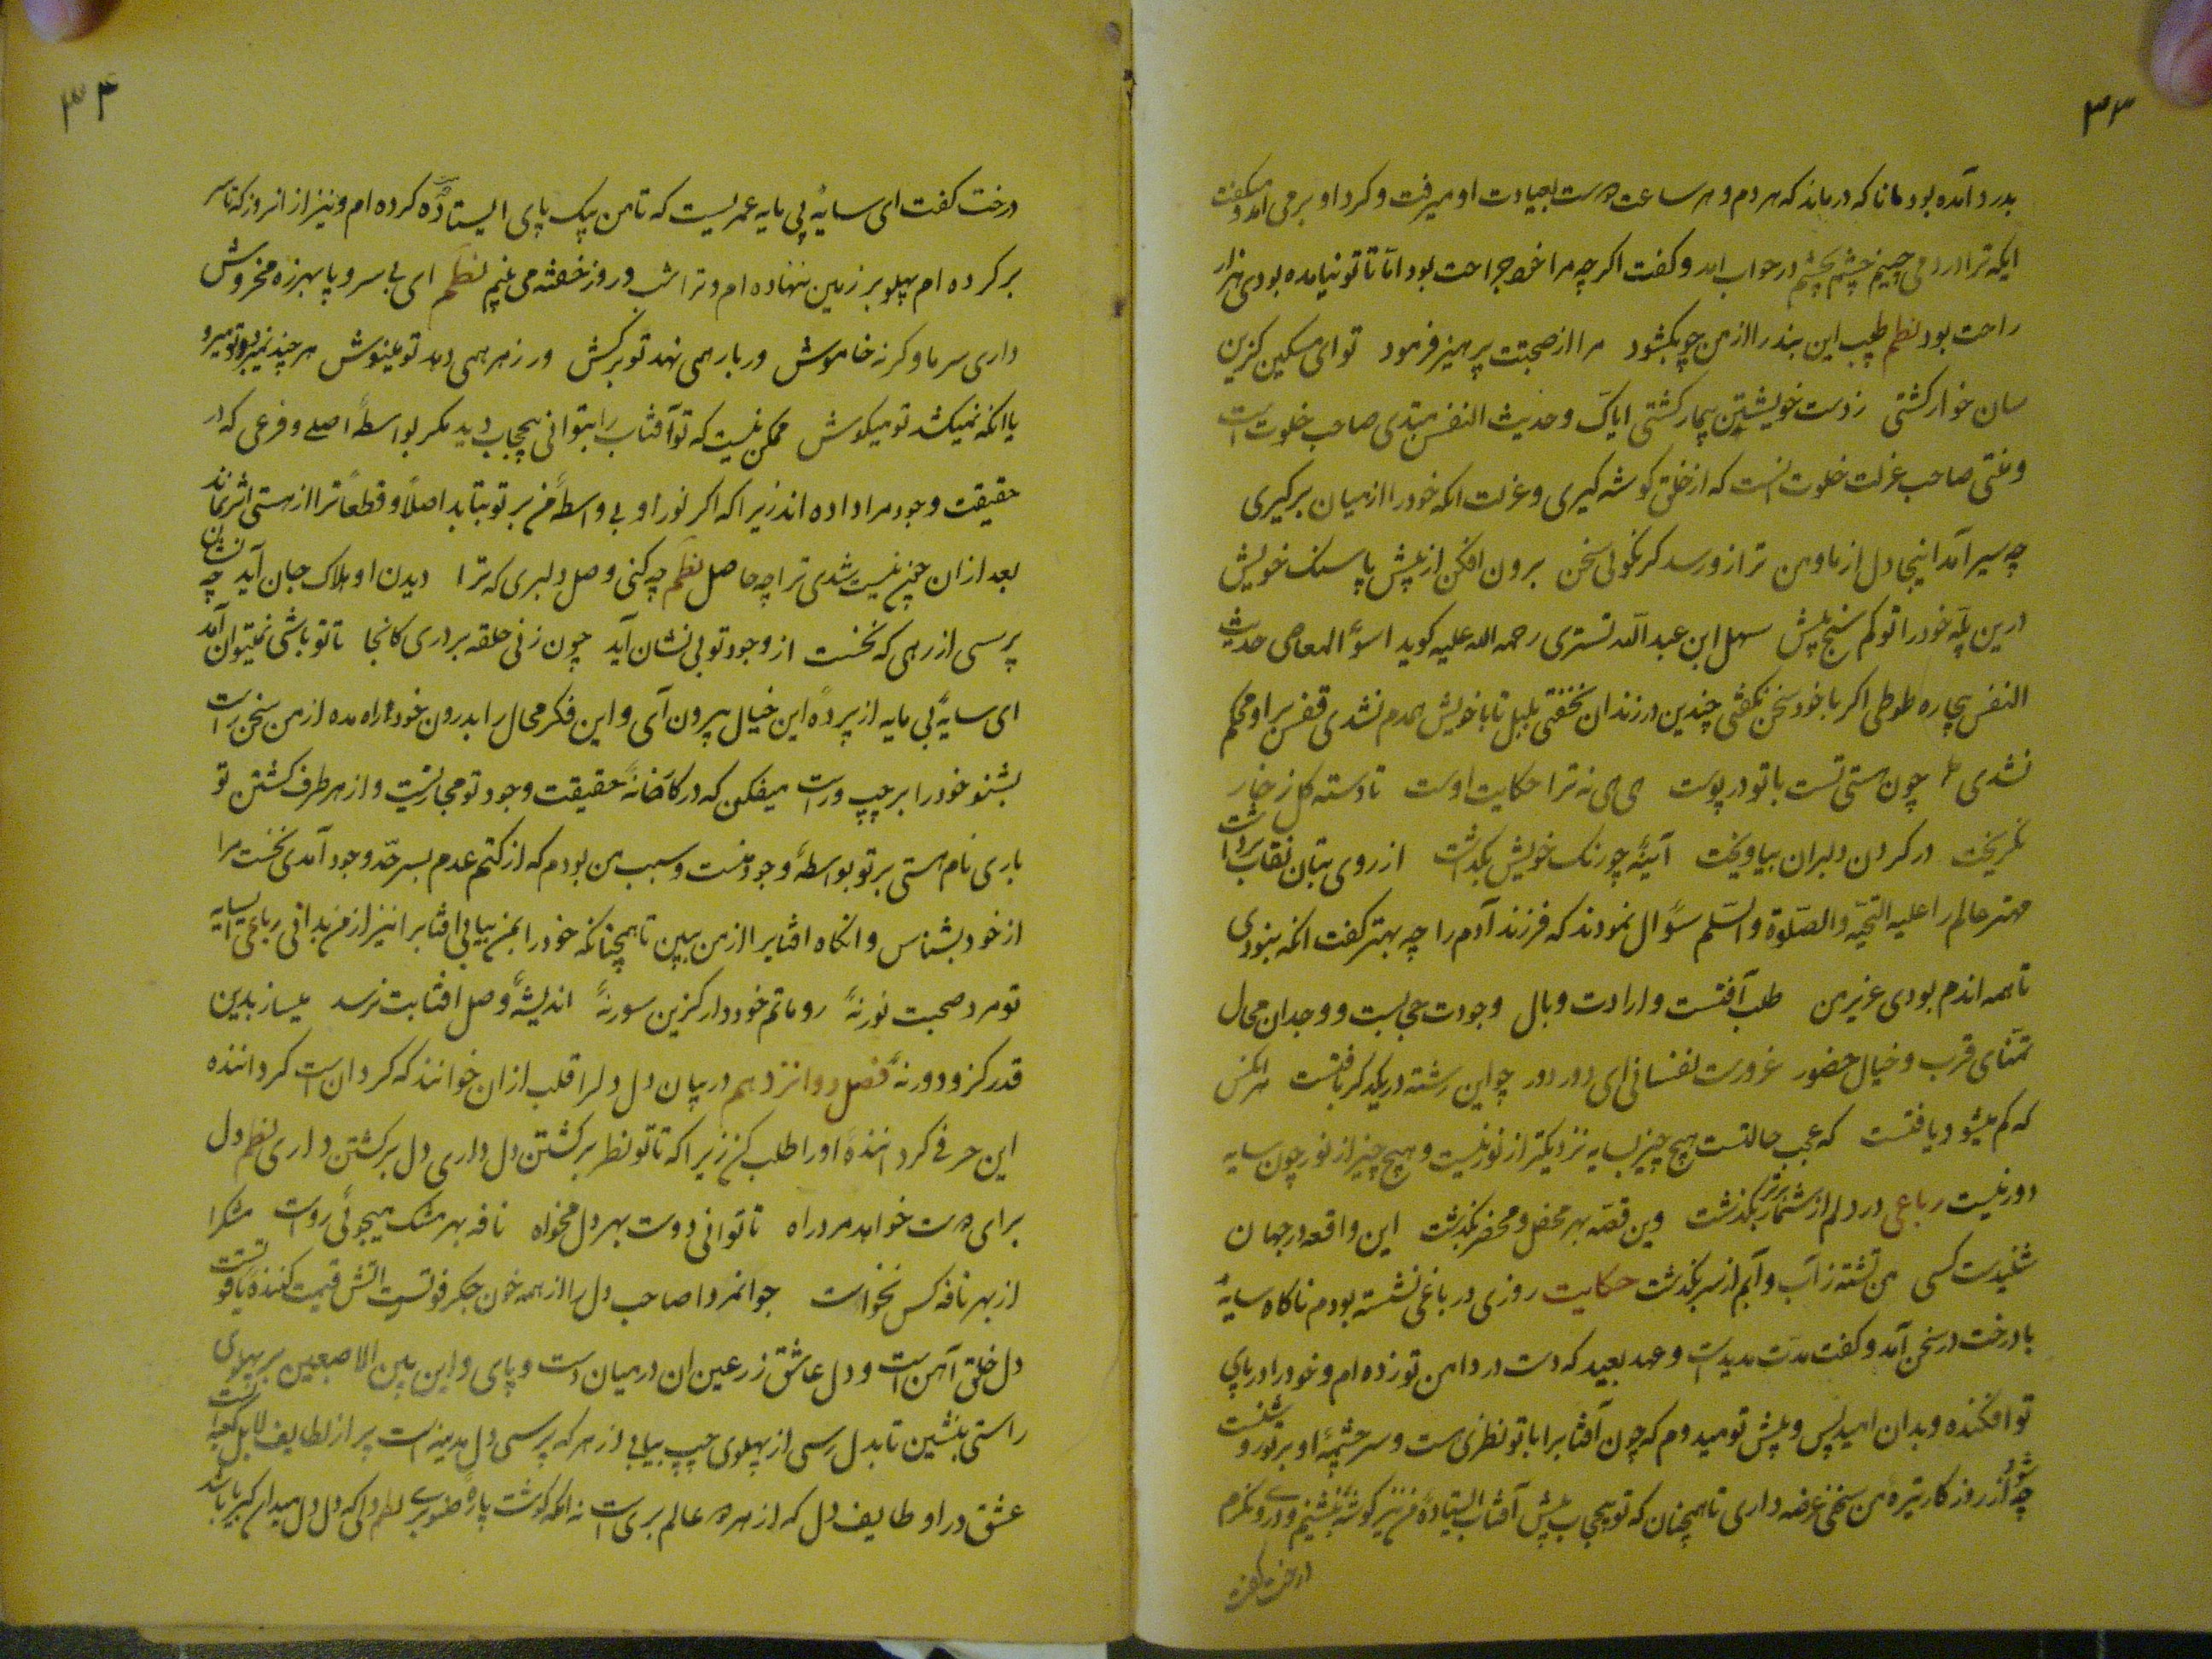 ۳۳
بدرد آمده بود مانا که درماند که هر دم و هر ساعت دست بعیادت او میرفت و کرد او برمی آمد و میکفت
ایکه ترا درد می چشم بچشم در جواب امد و کفت اکر چه مرا خود جراحت بود اما تا تو نیامده بودی هزار
راحت بود نظم طبیب این بند را از من چو بکشود مرا از صحبتت پرهیز فرمود تو ای مسکین کزین
سان خوار کشتی ز دست خویشتن بیمار کشتی ایاک و حدیث النفس مبتدی صاحب خلوت است
و منتهی صاحب عزلت خلوت انست که از خلق کوشه کیری و عزلت انکه خود را از میان برکیری
چه سیر آمد اینجا دل از ما و من ترازو رسد کر نکوئی سخن برون افکن از پیش پا سنک خویش
درین پله خود را تو کم سنج پیش سهل ابن عبدالله تستری رحمه الله علیه کوید اسوء المعاصی حدیث
النفس بیچاره طوطی اکر با خود سخن نکفتی چندین در زندان نخفتی بلبل تا با خویش همدم نشدی قفس بر او محکم
نشدی چون هستی تست با تو در پوست هی هی نه ترا حکایت اوست تا دسته کل ز خار
نکریخت در کردن دلبران بیاویخت آینه چو زنک خویش بکذاشت از روی بتان نقاب برداشت
مهتر عالم را علیه التحیه و الصلوة و السلم سؤال نمودند که فرزند آدم را چه بهتر کفت انکه نبودی
تا همه اندم بودی عزیز من طلب آفتست و ارادت وبال وجودت حجابست و وجدان محال
تمنای قرب و خیال حضور غرورست نفسانی ای دور دور چو این رشته در یکدکر بافتست هر انکس
که کم میشود یافتست که عجب حالتست هیچ چیز بسایه نزدیکتر از نور نیست و هیچ چیز از نور چون سایه
دور نیست رباعی درد دلم از شمار برتر بکذشت وین قصه بهر محفل و محضر بکذشت این واقعه در جهان
شنیدست کسی من تشنه ز آب و آبم از سر بکذشت حکایت روزی در باغی نشسته بودم ناکاه سایهٔ
با درخت در سخن آمد و کفت مدت مدیدست و عهد بعید که دست در دامن تو زده ام و خود را در پای
تو افکنده و بدان امید پس و پیش تو میدوم که چون آفتاب را با تو نظری هست و سرچشمهٔ او بر تو روشنست
چه شود از روز کار تیره من سخنی عرضه داری تا همچنان که تو بیحجاب پیش آفتاب ایستادهٔ من نیز کوشهٔ بنشینم و در وی نکرم
درخت کفت
۳۴
درخت کفت ای سایهٔ بی مایه عمریست که تا من بیک پای ایستاده ام و نیز از انروز که تا سر
بر کرده ام پهلو بر زمین ننهاده ام و ترا شب و روز خفته می بینم نظم ای بی سر و پا بهرزه مخروش
داری سر ما و کرنه خاموش ور بار همی نهد تو برکش ور زهر همی دهد تو مینوش هر چند نمیبرد تو میرو
یا انکه نمیکشد تو میکوش ممکن نیست که تو آفتاب را بتوانی بیحجاب دید مکر بواسطهٔ اصلی و فرعی که در
حقیقت وجود مرا داده اند زیرا که اکر نور او بی واسطهٔ من بر تو بتابد اصلاً و قطعاً ترا از هستی اثر نماند
بعد ازان چون نیست شدی ترا چه حاصل نظم چه کنی وصل دلبری که ترا دیدن او هلاک جان آید چه نشان
پرسی از رهی که نخست از وجود تو بی نشان آید چون زنی حلقه بر دری کانجا تا تو باشی نمیتوان آمد
ای سایهٔ بی مایه از پردهٔ این خیال بیرون آی و این فکر محال را بدرون خود راه مده از من سخن راست
بشنو خود را بر چپ و راست میفکن که در کارخانهٔ حقیقت وجود تو مجازیست و از هر طرف کشتن تو
باری نام هستی بر تو بواسطهٔ وجود منست و سبب من بودم که از کتم عدم بسرحد وجود آمدی نخست مرا
از خود بشناس و انکاه افتاب را از من ببین تا همچنانکه خود را بمن بیابی افتاب را نیز از من بدانی رباعی ای سایه
تو مرد صحبت نور نهٔ رو ماتم خود دار کزین سور نهٔ اندیشهٔ وصل افتابت نرسد میساز بدین
قدر کزو دور نهٔ فصل دوانزدهم در بیان دل دل را قلب ازان خوانند که کردان است کرداننده
این حرفی کردانندهٔ او را طلب کن زیرا که تا تو نظر بر کشتن دل داری دل بر کشتن داری نظم دل
برای دوست خواهد مرد راه تا توانی دوست بهر دل مخواه نافه بهر مشک میجوئی رواست مشک را
از بهر نافه کس نخواست جوانمردا صاحب دل را از همه خون جکر قوتست آتش قیمت کنندهٔ یاقوتست
دل خلق آهن است و دل عاشق زر عین ان در میان دست و پای و این بین الاصبعین بر پهلوی
راستی بنشین تا بدل رسی از پهلوی چپ بیابی از هر که پرسی دل مدینه است پر از لطایف لا بل کعبه است
عشق در او طایف دل که از هر دو عالم بری است نه انکه کوشت پارهٔ صنوبری نظم دلی که دل دل میدان کبریا باشد